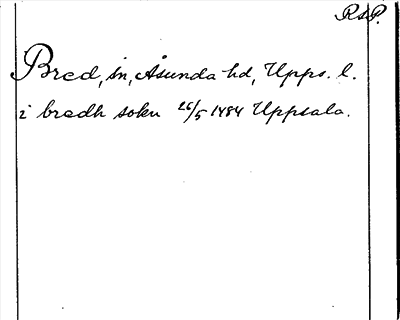 R s P.
Bred, sn, Åsunda hd, Upps. l.
i bredh sokn 26/5 1484 Uppsala.